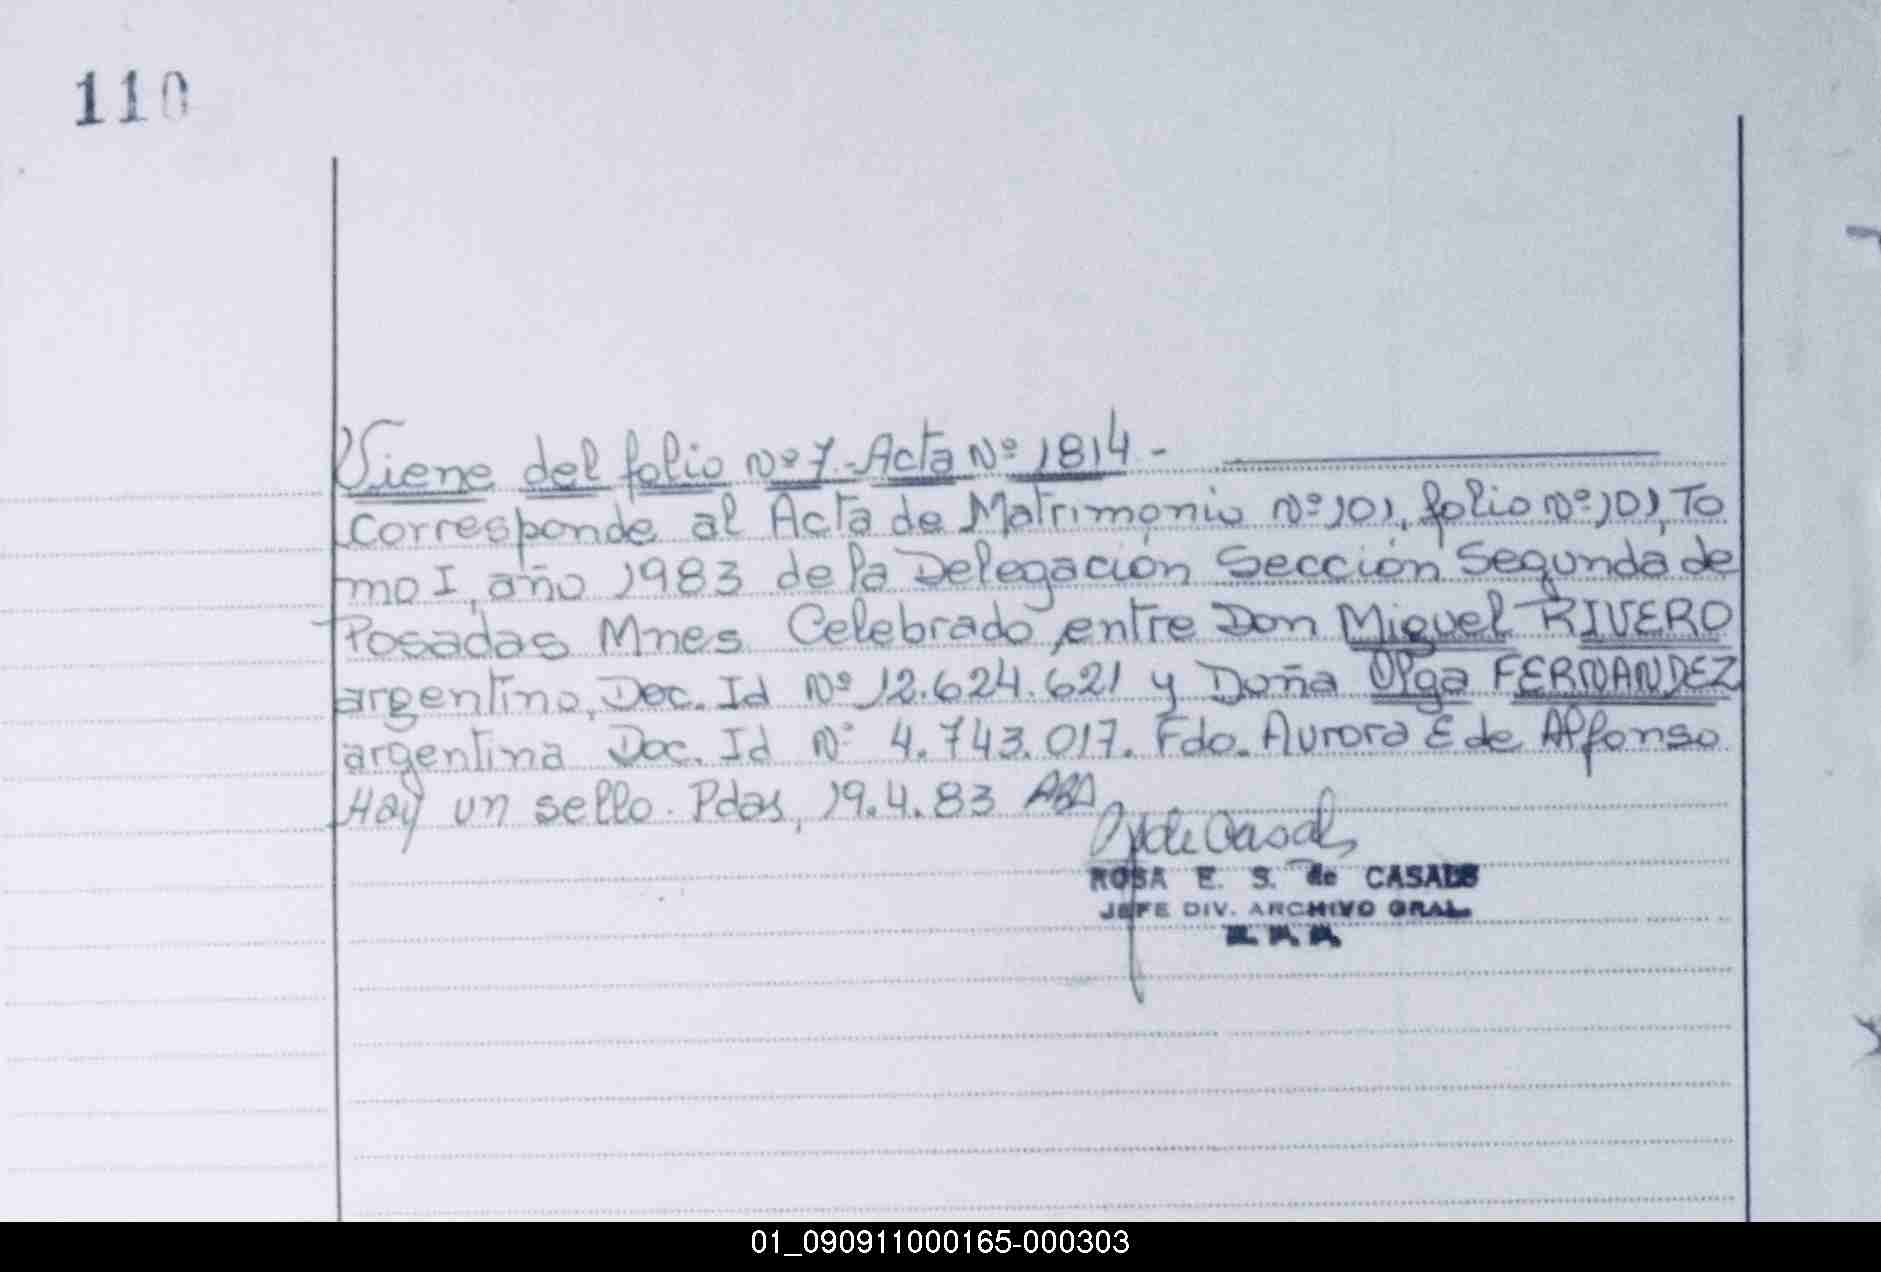 110
Viene del folio Nº 7.- Acta Nº 1814 -
Corresponde al Acta de Matrimonio Nº 101, folio Nº 101, To
mo I, año 1983 de la Delegación Sección Segunda de
Posadas Mnes. Celebrado entre Don Miguel RIVERO
argentino, Doc. Id Nº 12.624.621 y Doña Olga FERNANDEZ
argentina Doc. Id Nº 4.743.017. Fdo. Aurora E de Alfonso
Hay un sello. Pdas, 19.4.83
de Casals
ROSA E. S. de CASALS
JEFE DIV. ARCHIVO GRAL.
01_090911000165-000303